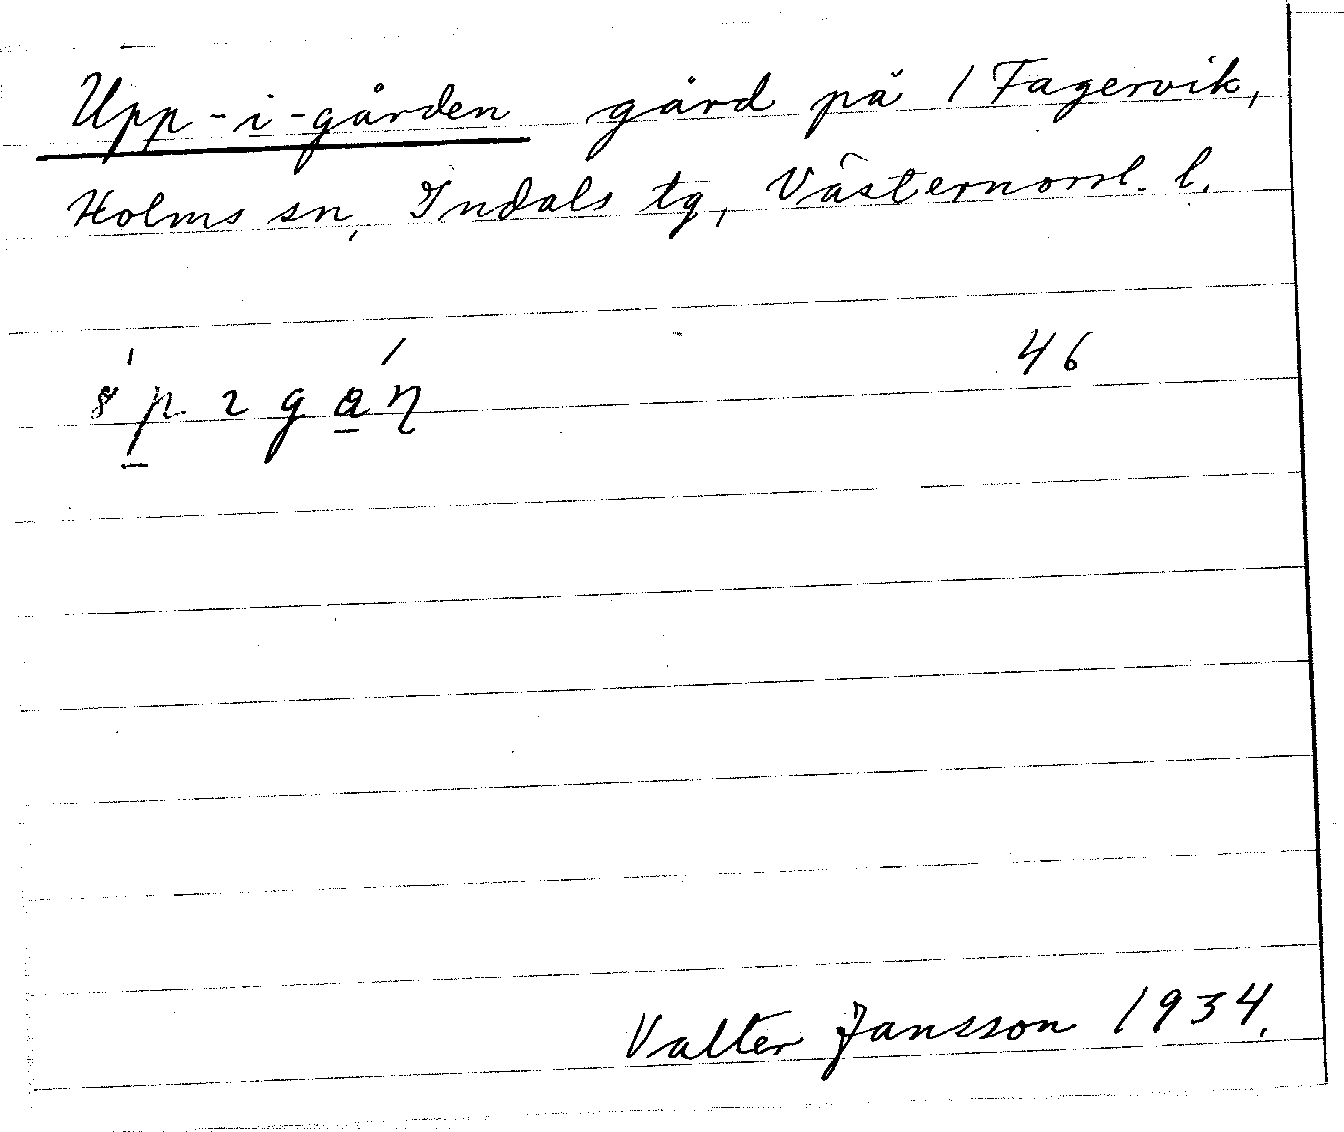 Upp-i-gården gård på 1 Fagervik,
Holms sn, Indals tg, Västernorrl. l.
46
Valter Jansson 1934.